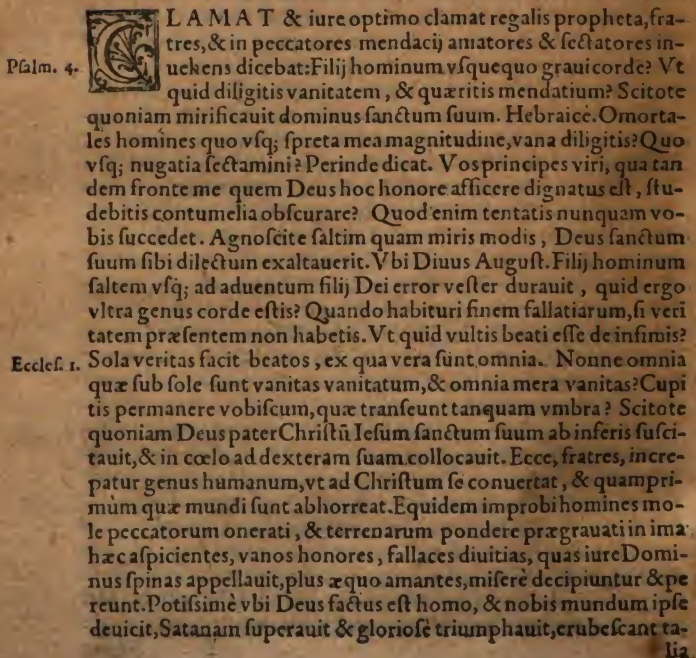 CLAMAT & iure optimo clamat regalis propheta, fra-
tres, & in peccatores mendacij amatores & ſectatores in-
Pſalm. 4. uehens dicebat: Filij hominum vſquequo graui corde? Vt
quid diligitis vanitatem, & quæritis mendatium? Scitote
quoniam mirificauit dominus ſanctum ſuum. Hebraicè. O morta-
les homines quo vſq; ſpreta mea magnitudine, vana diligitis? Quo
vſq; nugatia ſectamini? Perinde dicat. Vos principes viri, qua tan
dem fronte me quem Deus hoc honore afficere dignatus eſt, ſtu-
debitis contumelia obſcurare? Quod enim tentatis nunquam vo-
bis ſuccedet. Agnoſcite ſaltim quam miris modis, Deus ſanctum
ſuum ſibi dilectum exaltauerit. Vbi Diuus Auguſt. Filij hominum
ſaltem vſq; ad aduentum filij Dei error veſter durauit, quid ergo
vltra genus corde eſtis? Quando habituri finem fallatiarum, ſi veri
tatem præſentem non habetis. Vt quid vultis beati eſſe de infimis?
Eccleſ. 1. Sola veritas facit beatos, ex qua vera ſunt omnia. Nonne omnia
quæ ſub ſole ſunt vanitas vanitatum, & omnia mera vanitas? Cupi
tis permanere vobiſcum, quæ tranſeunt tanquam vmbra? Scitote
quoniam Deus pater Chriſtū Ieſum ſanctum ſuum ab inferis ſuſci-
tauit, & in cœlo ad dexteram ſuam collocauit. Ecce, fratres, incre-
patur genus humanum, vt ad Chriſtum ſe conuertat, & quampri-
mùm quæ mundi ſunt abhorreat. Equidem improbi homines mo-
le peccatorum onerati, & terrenarum pondere prægrauati in ima
hæc aſpicientes, vanos honores, fallaces diuitias, quas iure Domi-
nus ſpinas appellauit, plus æquo amantes, miſerè decipiuntur & pe
reunt. Potiſſimè vbi Deus factus eſt homo, & nobis mundum ipſe
deuicit, Satanam ſuperauit & glorioſè triumphauit, erubeſcant ta-
lia